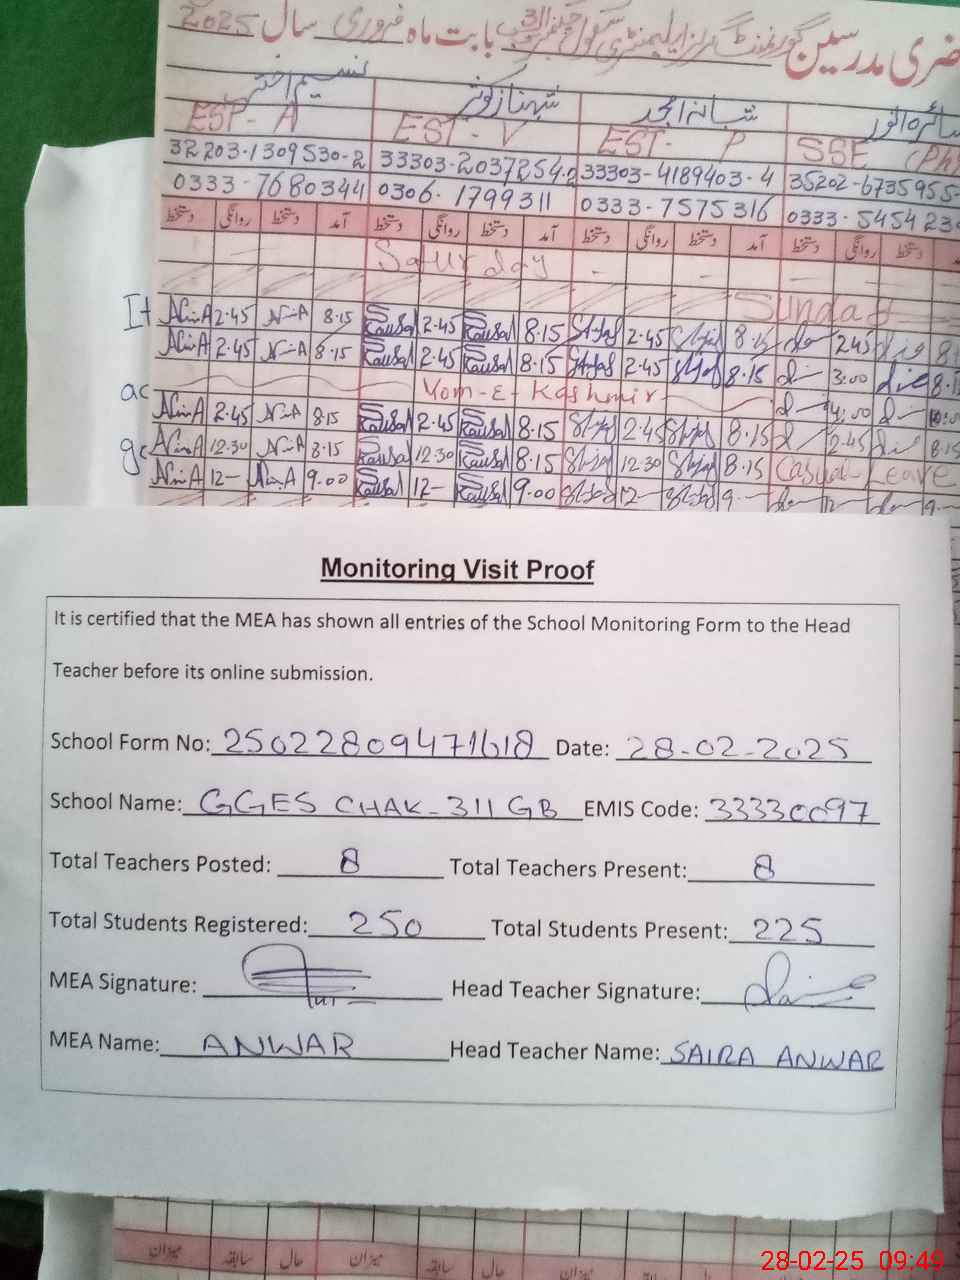 حاضری مدرسین گورنمنٹ گرلز ایلیمنٹری سکول بابت ماہ فروری سال 2025
نسیم اختر شہناز کوثر شبانہ امجد سائرہ انور
EST- A EST- V EST- P SSE (Ph
32203-1309530-2 33303-2037254-2 33303-4189403-4 35202-6735955-
0333-7680344 0306-1799311 0333-7575316 0333-5454230
دستخط روانگی دستخط آمد دستخط روانگی دستخط آمد دستخط روانگی دستخط آمد دستخط روانگی دستخط
Saturday
Sunday
2.45 8.15 Kausar 2.45 Kausar 8.15 2.45 8.15 2.45 8
2.45 8.15 Kausar 2.45 Kausar 8.15 2.45 8.15 3:00 8.1
Yom-E-Kashmir
2.45 8.15 Kausar 2.45 Kausar 8.15 2.45 8.15 2.45 8.15
12.30 8.15 Kausar 12.30 Kausar 8.15 12.30 8.15 Casual Leave
12- 9.00 Kausar 12- Kausar 9.00 12- 9- 12 9-
Monitoring Visit Proof
It is certified that the MEA has shown all entries of the School Monitoring Form to the Head
Teacher before its online submission.
School Form No: 25022809471618 Date: 28-02-2025
School Name: GGES CHAK-311 GB EMIS Code: 33330097
Total Teachers Posted: 8 Total Teachers Present: 8
Total Students Registered: 250 Total Students Present: 225
MEA Signature: Head Teacher Signature:
MEA Name: ANWAR Head Teacher Name: SAIRA ANWAR
میزان سابقہ حال میزان سابقہ حال میزان سابقہ
28-02-25 09:49